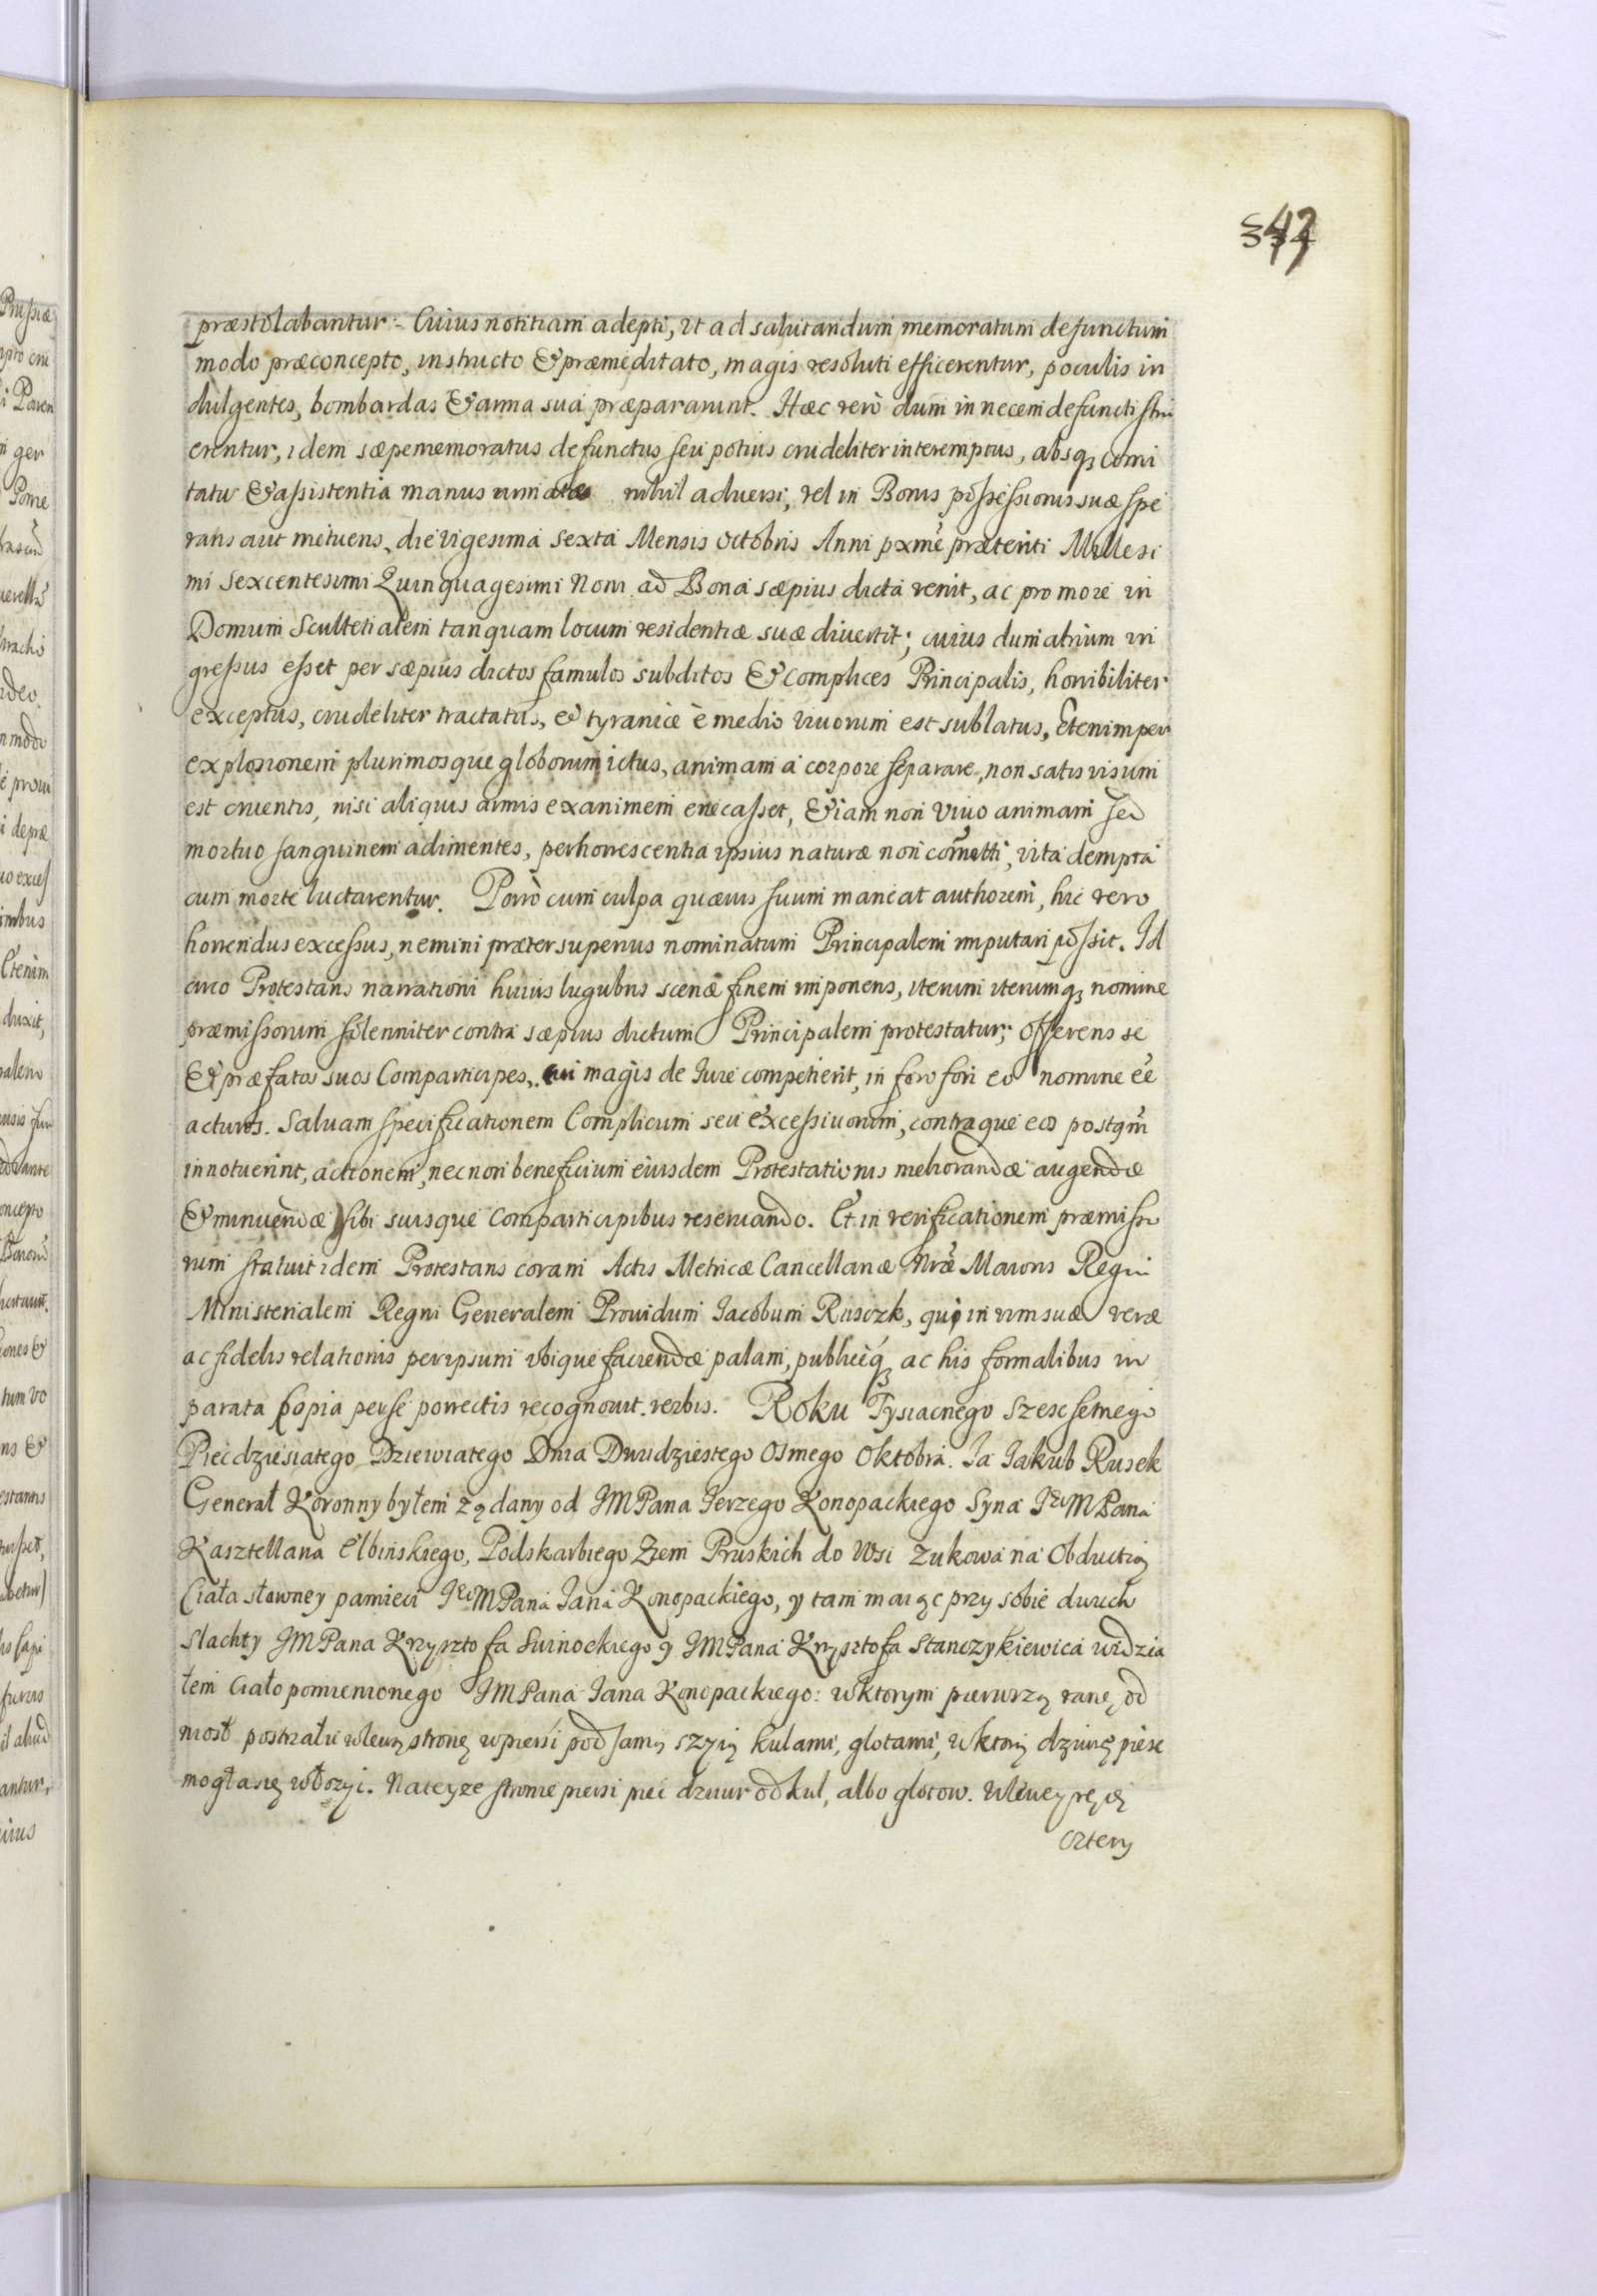 præstolabantur. Cuius notitiam adepti, ut ad salutandum memoratum defunctum
modo præconcepto, instructo & præmeditato, magis resoluti efficerentur, poculis in
dulgentes, bombardas & arma sua præpararunt. Hæc verò dum in necem defuncti stru
erentur, idem sæpememoratus defunctus seu potius crudeliter interemptus, absq₃ comi
tatu & assistentia manus armatæ nihil adversi, vel in Bonis possessionis suæ spe
rans aut metuens, die vigesima sexta Mensis Octobris Anni pxmè præteriti Millesi
mi Sexcentesimi Quinquagesimi Noni ad Bona sæpius dicta venit, ac pro more in
Domum Scultetialem tanquam locum residentiæ suæ divertit; cuius dum atrium in
gressus esset per sæpius dictos famulos subditos & Complices Principalis, horribiliter
exceptus, crudeliter tractatus, et tyranicè è medio vivorum est sublatus, Etenim per
explosionem plurimosque globorum ictus, animam a corpore separare, non satis visum
est cruentis, nisi aliquis armis exanimem enecasset, & iam non vivo animam sed
mortuo sanguinem adimentes, perhorrescentia ipsius naturæ non comotti, vita dempta
cum morte luctarentur. Porrò cum culpa quævis suum maneat authorem, hic vero
horrendus excessus, nemini præter superius nominatum Principalem imputari possit. Id
circo Protestans narrationi huius lugubris scenæ finem imponens, iterum iterumq₃ nomine
præmissorum solenniter contra sæpius dictum Principalem protestatur; offerens se
& præfatos suos Comparticipes, cui magis de Iure competierit, in foro fori eo nomine ẽe
acturos. Salvam specificationem Complicum seu excessivorum, contraque eos postqm̃
innotuerint, actionem, necnon beneficium eiusdem Protestationis meliorandæ augendæ
& minuendæ sibi suisque comparticipibus reservando. Et in verificationem præmisso
rum statuit idem Protestans coram Actis Metricæ Cancellariæ Nræ Maioris Regni
Ministerialem Regni Generalem Providum Iacobum Rusczk, qui in vim suæ veræ
ac fidelis relationis per ipsum ubique faciendæ palam, publicèq₃ ac his formalibus in
parata copia per se porrectis recognovit verbis. Roku Tysiacnego Szescsetnego
Piecdziesiatego Dziewiatego Dnia Dwudziestego Osmego Oktobra. Ia Iakub Rusek
Generał Koronny byłem żądany od IMPana Ierzego Konopackiego Syna Iego MPana
Kasztellana Elbinskiego, Podskarbiego Ziem Pruskich do Wsi Zukowa na Obductią
Ciała sławney pamieci Iego MPana Iana Konopackiego, y tam maiąc przy sobie dwuch
Slachty IMPana Krzysztofa Swinockiego y IMPana Krzysztofa Stanczykiewica widzia
łem Ciało pomienionego IMPana Iana Konopackiego: w ktorym pierwszą ranę, od
niosł postrzału w lewą stronę w piersi pod samą szyią kulami, glotami, w ktorą dziurę piesc
mogła się włozyc. Na teyze stronie piersi piec dziur od kul, albo glotow. W lewey ręcę
cztery